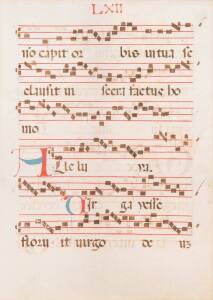 LXII
no capit or bis in tua se
clausit in scera factus ho
mo
A lle lu ya.
Uir ga yesse
floru it uirgo de uz